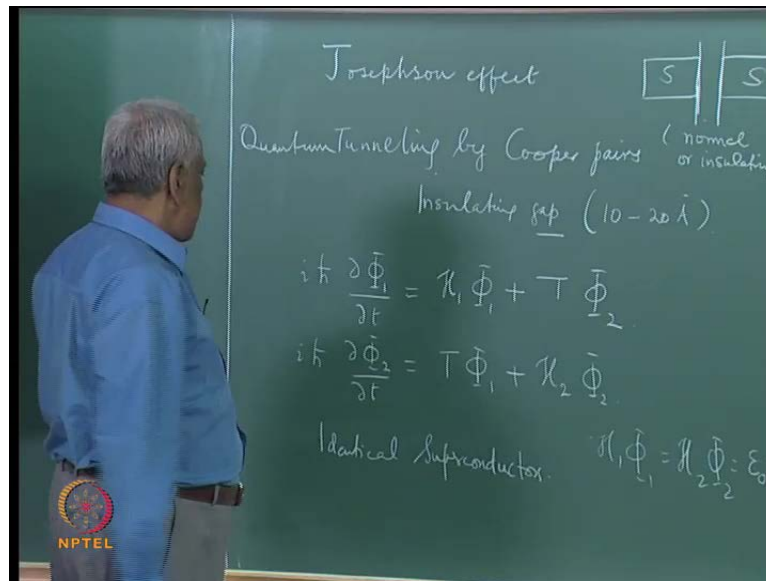 Josephson effect
S S
Quantum Tunneling by Cooper pairs (normal
or insulatin
Insulating gap (10 - 20 Å)
iħ ∂Φ₁/∂t = ℋ₁Φ₁ + T Φ₂
iħ ∂Φ₂/∂t = TΦ₁ + ℋ₂ Φ₂
Identical Superconductor. ℋ₁Φ₁ = ℋ₂Φ₂ = ε₀
NPTEL